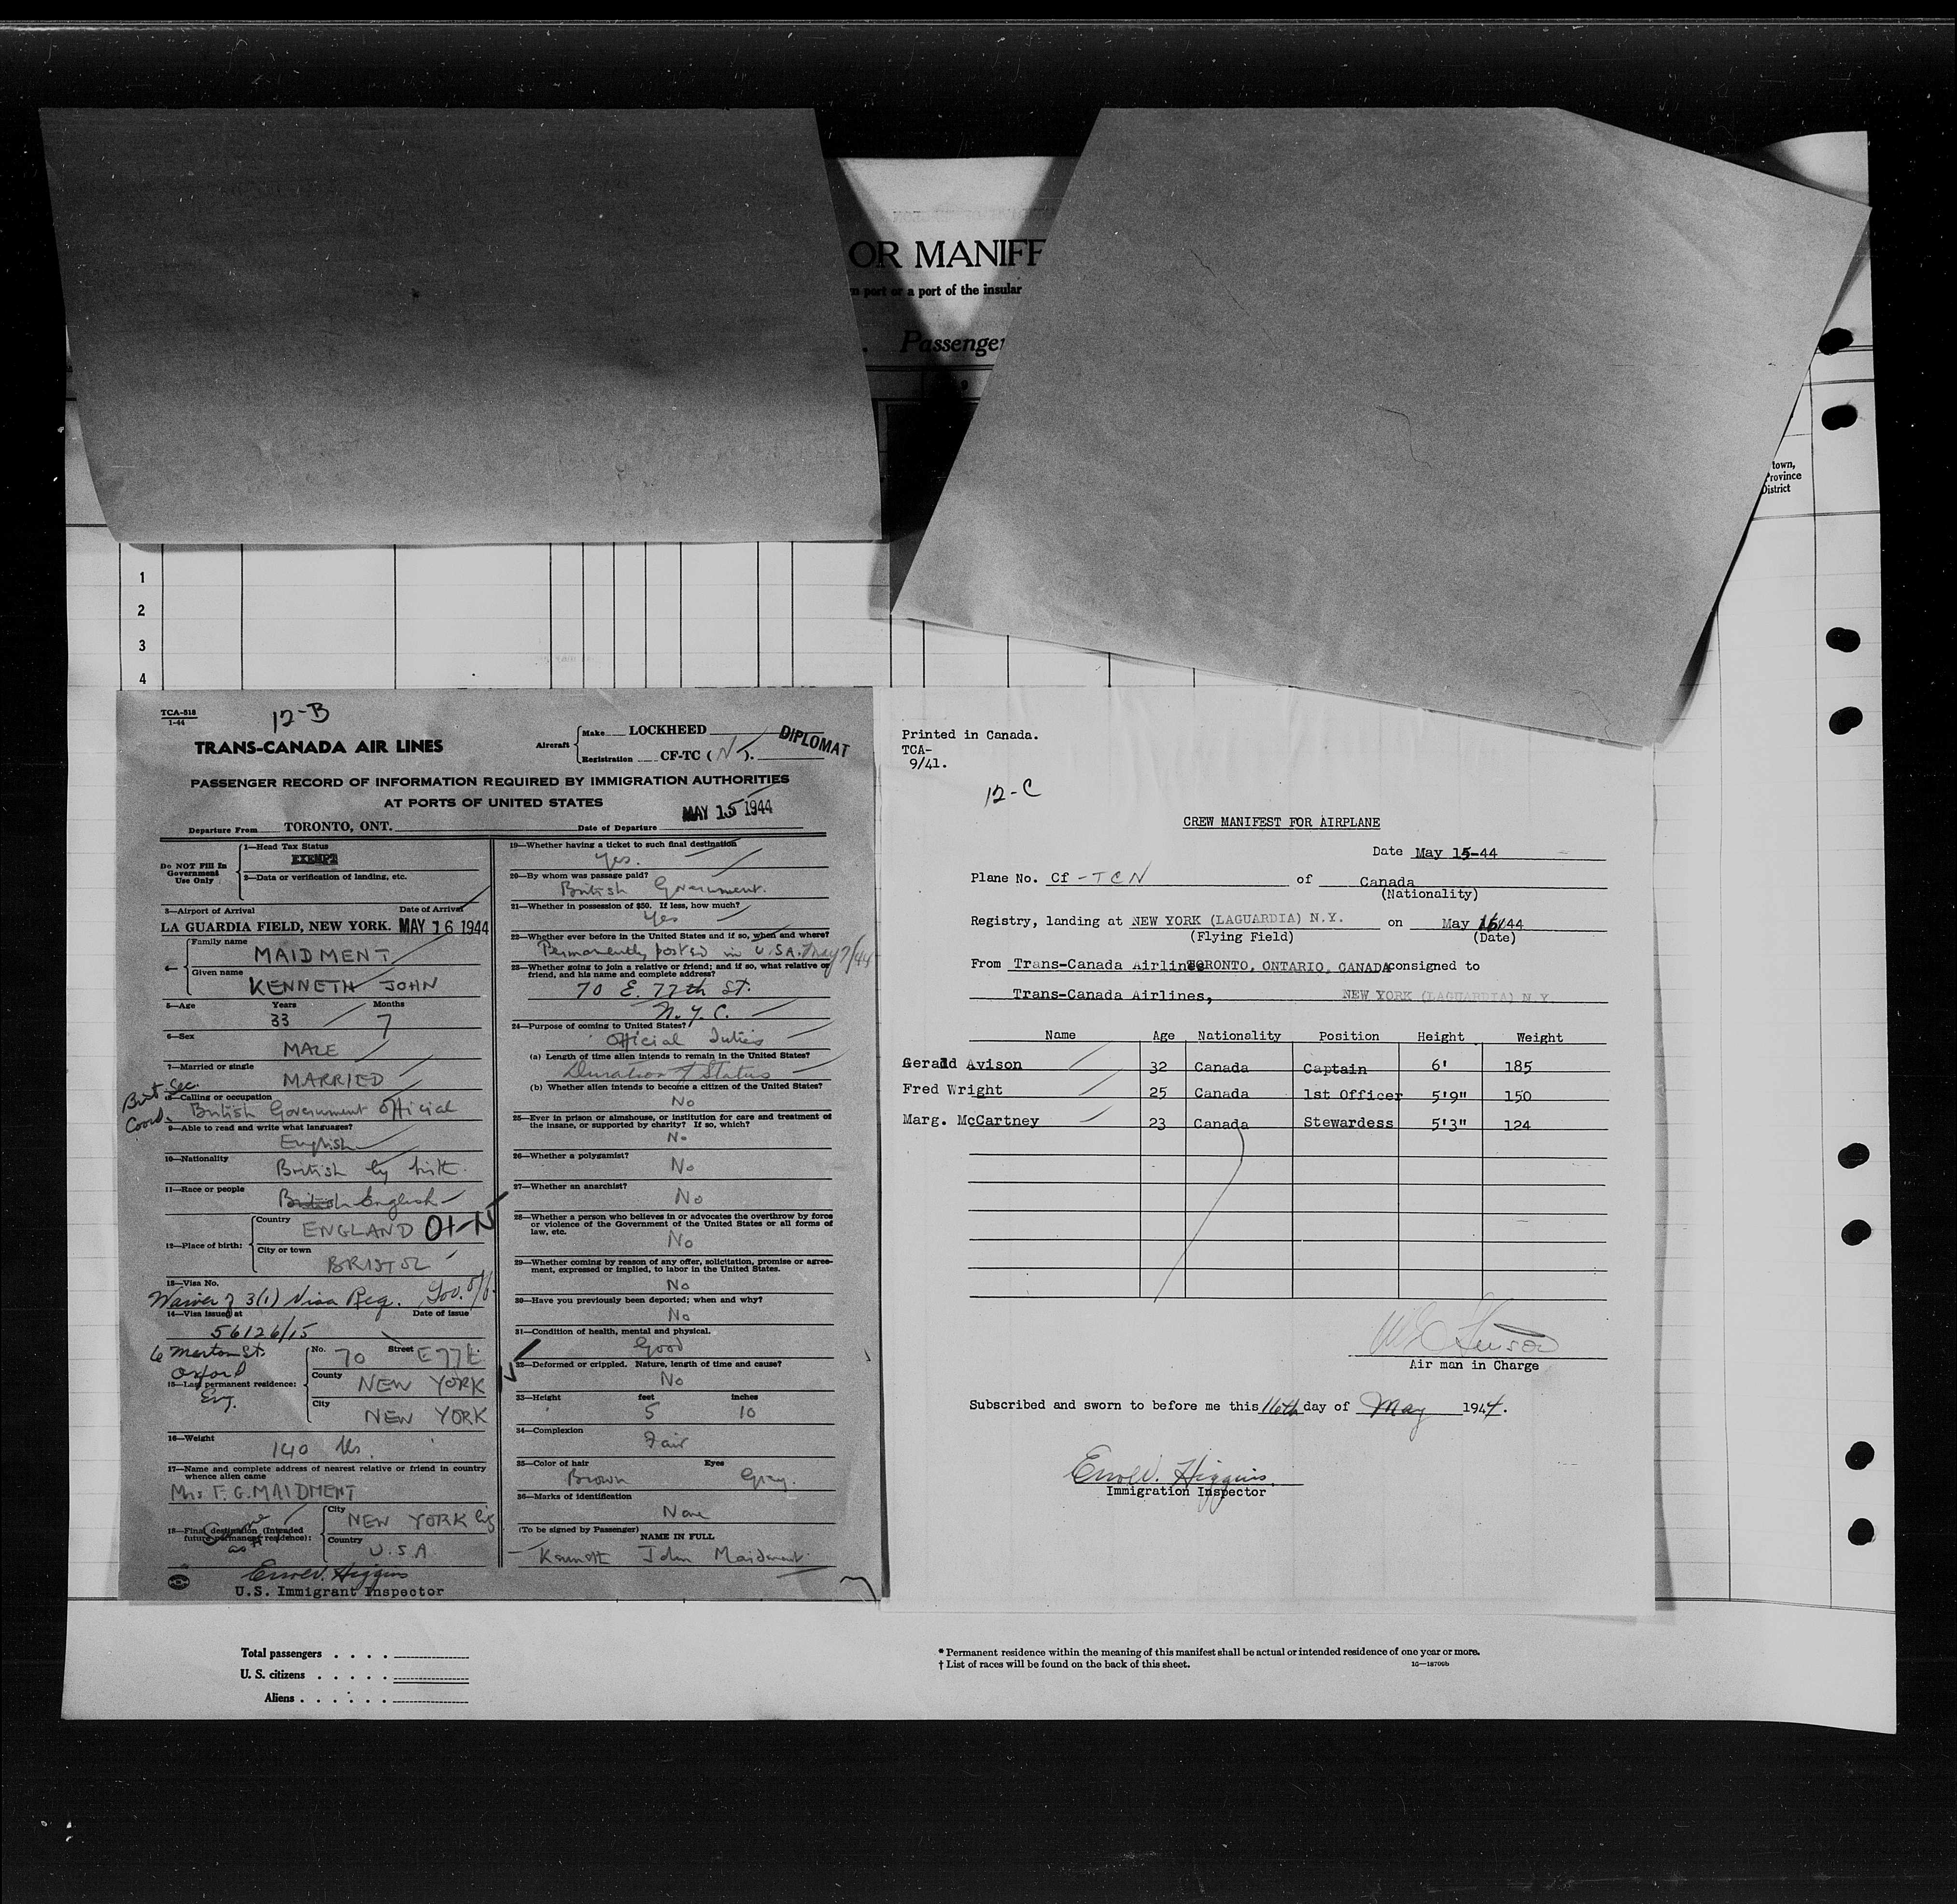 OR MANIFE
n port or a port of the insular
. Passenger
9
town,
Province
District
1
2
3
4
TCA-518
1-44
12-B
TRANS-CANADA AIR LINES
Aircraft
Make LOCKHEED
Registration CF-TC (N).
DIPLOMAT
PASSENGER RECORD OF INFORMATION REQUIRED BY IMMIGRATION AUTHORITIES
AT PORTS OF UNITED STATES
MAY 15 1944
Departure From TORONTO, ONT. Date of Departure
Do NOT Fill In
Government
Use Only
1—Head Tax Status
EXEMPT
2—Data or verification of landing, etc.
3—Airport of Arrival Date of Arrival
LA GUARDIA FIELD, NEW YORK. MAY 16 1944
Family name
MAIDMENT
Given name
KENNETH JOHN
5—Age Years Months
33 7
6—Sex
MALE
7—Married or single
MARRIED
Brit Sec.
Coord.
8—Calling or occupation
British Government Official
9—Able to read and write what languages?
English
10—Nationality
British by birth.
11—Race or people
British English
12—Place of birth:
Country
ENGLAND OT-N
City or town
BRISTOL
13—Visa No.
Waiver of 3(1) Visa Req. Gov. Off.
14—Visa issued at Date of issue
56126/15
6 Merton St.
Oxford
Eng.
15—Last permanent residence:
No. 70 Street E 77th
County
NEW YORK
City
NEW YORK
16—Weight
140 lbs.
17—Name and complete address of nearest relative or friend in country
whence alien came
Mrs F. G. MAIDMENT
18—Final destination (Intended
future permanent residence):
Same
as #
City
NEW YORK City
Country
U.S.A
Errol V. Higgins
U.S. Immigrant Inspector
19—Whether having a ticket to such final destination
Yes.
20—By whom was passage paid?
British Government.
21—Whether in possession of $50. If less, how much?
Yes
22—Whether ever before in the United States and if so, when and where?
Permanently posted in U.S.A. May 7/44
23—Whether going to join a relative or friend; and if so, what relative or
friend, and his name and complete address?
70 E. 77th St.
N.Y.C.
24—Purpose of coming to United States?
Official Duties
(a) Length of time alien intends to remain in the United States?
Duration of Status
(b) Whether alien intends to become a citizen of the United States?
No
25—Ever in prison or almshouse, or institution for care and treatment of
the insane, or supported by charity? If so, which?
No
26—Whether a polygamist?
No
27—Whether an anarchist?
No
28—Whether a person who believes in or advocates the overthrow by force
or violence of the Government of the United States or all forms of
law, etc.
No
29—Whether coming by reason of any offer, solicitation, promise or agree-
ment, expressed or implied, to labor in the United States.
No
30—Have you previously been deported; when and why?
No
31—Condition of health, mental and physical.
Good
32—Deformed or crippled. Nature, length of time and cause?
No
33—Height feet inches
5 10
34—Complexion
Fair
35—Color of hair Eyes
Brown Gray.
36—Marks of identification
None
(To be signed by Passenger)
NAME IN FULL
Kenneth John Maidment
Printed in Canada.
TCA-
9/41.
12-C
CREW MANIFEST FOR AIRPLANE
Date May 15-44
Plane No. Cf-TCN of Canada
(Nationality)
Registry, landing at NEW YORK (LAGUARDIA) N.Y. on May 16/44
(Flying Field) (Date)
From Trans-Canada Airlines TORONTO, ONTARIO, CANADA consigned to
Trans-Canada Airlines, NEW YORK (LAGUARDIA) N.Y.
Name Age Nationality Position Height Weight
Gerald Avison 32 Canada Captain 6' 185
Fred Wright 25 Canada 1st Officer 5'9" 150
Marg. McCartney 23 Canada Stewardess 5'3" 124
Air man in Charge
Subscribed and sworn to before me this 16th day of May 1944.
Errol V. Higgins
Immigration Inspector
Total passengers . . . .
U. S. citizens . . . . .
Aliens . . . . . .
* Permanent residence within the meaning of this manifest shall be actual or intended residence of one year or more.
† List of races will be found on the back of this sheet. 16—18700b